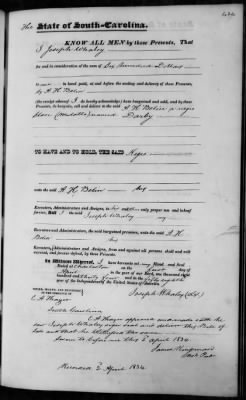 The State of South-Carolina.
KNOW ALL MEN by these Presents, That
I Joseph Whaley
for and in consideration of the sum of Six Hundred Dollars
to me in hand paid, at and before the sealing and delivery of these Presents,
by A H Belin
(the receipt whereof I do hereby acknowledge) have bargained and sold, and by these
Presents, do bargain, sell and deliver to the said A H Belin a negro
slave (mulatto) named Darby
TO HAVE AND TO HOLD, THE SAID Negro
unto the said A H Belin his
Executors, Administrators and Assigns, to his and their only proper use and behoof
forever. And I the said Joseph Whaley my
Executors and Administrators, the said bargained premises, unto the said A H
Belin his
Executors, Administrators and Assigns, from and against all persons shall and will
warrant, and forever defend, by these Presents.
In Witness Whereof, I have hereunto set my Hand and Seal
Dated at Charleston on the first day of
April in the year of our Lord, one thousand eight
hundred and thirty four and in the fifty eighth
year of the Independence of the United States of America.
SIGNED, SEALED, AND DELIVERED
IN THE PRESENCE OF
Joseph Whaley (LS)
E A Thayer
South Carolina
E A Thayer appeared and made oath he
saw Joseph Whaley sign seal and deliver this Bill of
Sale and that he witnessed the same
Sworn to before me this 2 April 1834
James Kingman
Recorded 2 April 1834